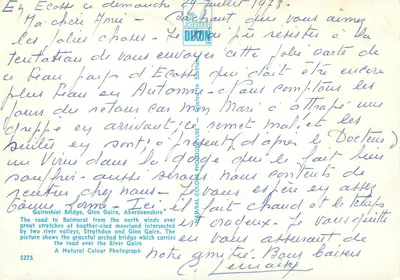 En Ecosse ce dimanche 29 juillet 1973
Ma chère Amie - Sachant que vous aimez
les jolies choses - Je n'ai pu résister à la
tentation de vous envoyer cette jolie carte de
ce beau pays d'Ecosse qui doit être encore
plus beau en Automne - nous comptons les
jours du retour car mon Mari a attrapé une
grippe en arrivant, se remet mal, et les
suites en sont, à présent, d'après le Docteur,
un Virus dans la gorge qui le fait bien
souffrir - aussi serons nous contents de
rentrer chez nous - Je vous espère en assez
bonne forme - Ici, il fait chaud et le temps
est orageux. Je vous quitte
en vous assurant de
notre amitié. Bons baisers
Gairnshiel Bridge, Glen Gairn, Aberdeenshire
The road to Balmoral from the north winds over
great stretches of heather-clad moorland intersected
by two river valleys, Strathdon and Glen Gairn. The
picture shows the graceful arched bridge which carries
the road over the River Gairn
A Natural Colour Photograph
5275
DIXON